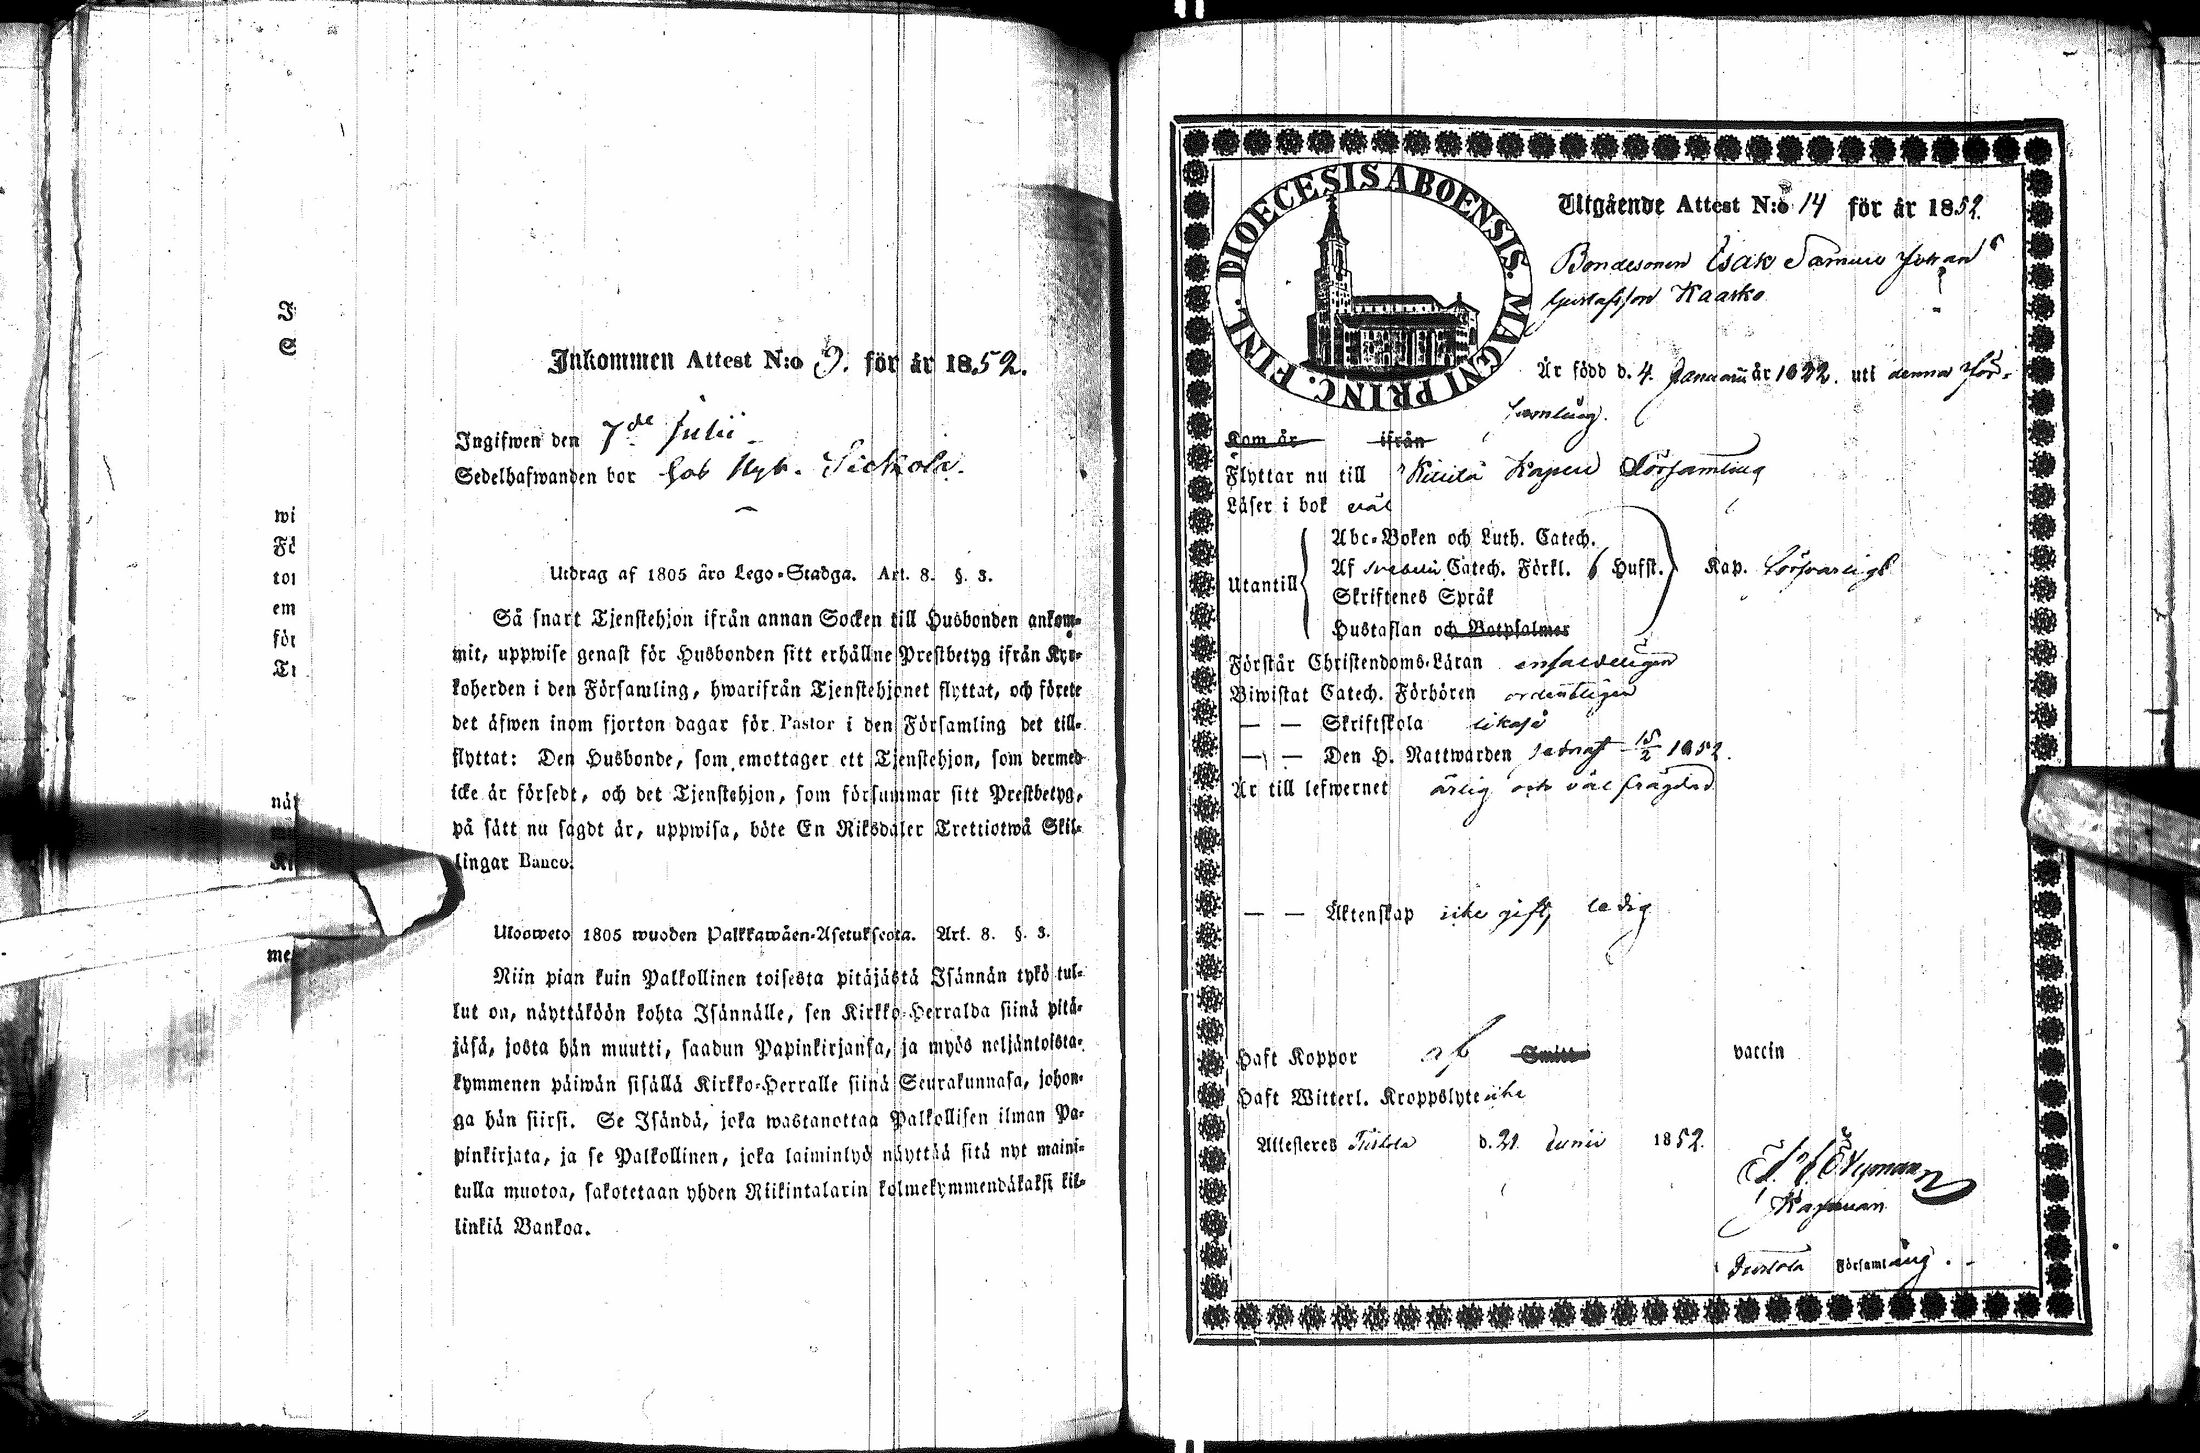 Inkommen Attest N:o 9. för år 1852.
Ingifwen den 7de Julii
Sedelhafwanden bor
Utdrag af 1805 års Lego-Stadga. Art. 8. §. 3.
Så snart Tjenstehjon ifrån annan Socken till Husbonden ankom-
mit, uppwise genast för Husbonden sitt erhållne Prestbetyg ifrån Kyr-
koherden i den Församling, hwarifrån Tjenstehjonet flyttat, och förete
det äfwen inom fjorton dagar för Pastor i den Församling det till-
flyttat: Den Husbonde, som emottager ett Tjenstehjon, som dermed
icke är försedt, och det Tjenstehjon, som försummar sitt Prestbetyg,
på sätt nu sagdt är, uppwisa, böte En Riksdaler Trettiotwå Skil-
lingar Banco.
Uloosweto 1805 wuoden Palkkawäen-Asetuksesta. Art. 8. §. 3.
Niin pian kuin Palkollinen toisesta pitäjästä Isännän tykö tul-
lut on, näyttäköön kohta Isännälle, sen Kirkko-Herralda siinä pitä-
jäsä, josta hän muutti, saadun Papinkirjansa, ja myös neljäntoista-
kymmenen päiwän sisällä Kirkko-Herralle siinä Seurakunnasa, johon-
ga hän siirsi. Se Isändä, joka wastanottaa Palkollisen ilman Pa-
pinkirjata, ja se Palkollinen, joka laiminlyö näyttää sitä nyt maini-
tulla muotoa, sakotetaan yhden Riikintalarin kolmekymmendäkaksi kil-
linkiä Bankoa.
DIOECESIS ABOENSIS. MAGNI PRINC. FINL.
Utgående Attest N:o 14 för år 1852.
Bondesonen Esak Johan
Gustafsson Kaarko
Är född d. 4. Januarii år 1822. uti denna För-
samling.
Kom år ifrån
Flyttar nu till Kapell Församling
Läser i bok väl
Abc-Boken och Luth. Catech.
Utantill Af Catech. Förkl. 6 Hufst. Kap. försvarligt
Skriftenes Språk
Hustaflan och Botpsalmer
Förstår Christendoms-Läran enfaldeligen
Biwistat Catech. Förhören ordentligen
— — Skriftskola likaså
— — Den H. Nattwarden sednast 15/2 1852.
Är till lefwernet ärlig och väl frägdad
— — Äktenskap icke gift, ledig
Haft Koppor af Smitt vaccin
Haft Witterl. Kroppslyte icke
Attesteres d. 21 Junii 1852.
Nyman
Kapellan
Församling.